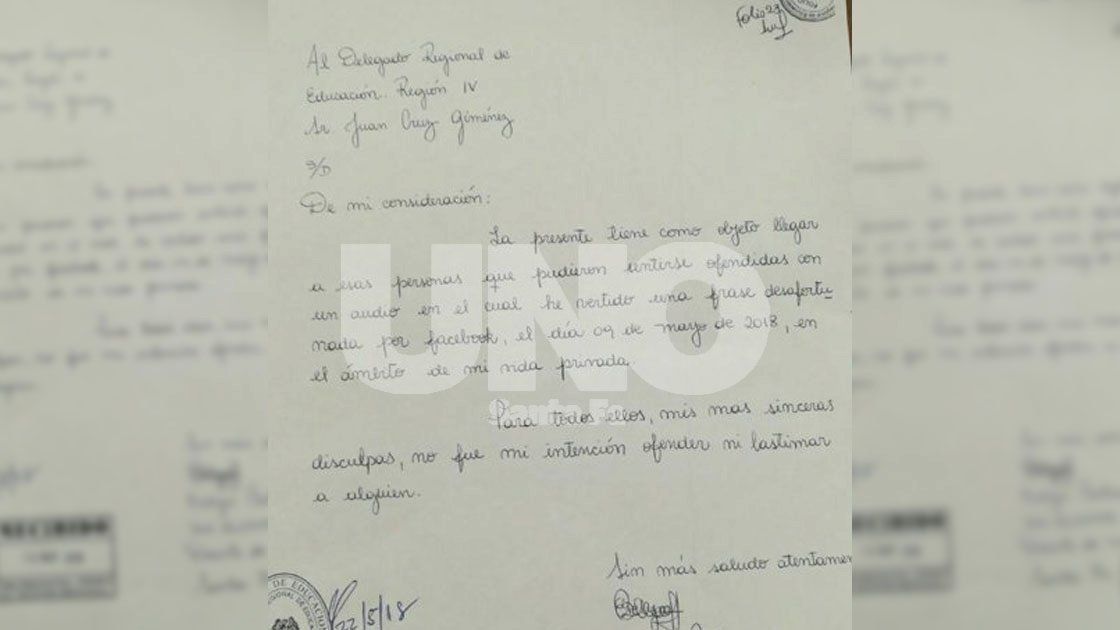 Folio 23
Al Delegado Regional de
Educación. Región IV
Sr Juan Cruz Giménez
S/D
De mi consideración:
La presente tiene como objeto llegar
a esas personas que pudieron sentirse ofendidas con
un audio en el cual he vertido una frase desafortu-
nada por facebook, el día 09 de mayo de 2018, en
el ámbito de mi vida privada.
Para todos ellos, mis mas sinceras
disculpas, no fue mi intención ofender ni lastimar
a alguien.
Sin más saludo atentamen
22/5/18
DE EDUCACIÓN
UNO
Santa Fe
RECIBIDO